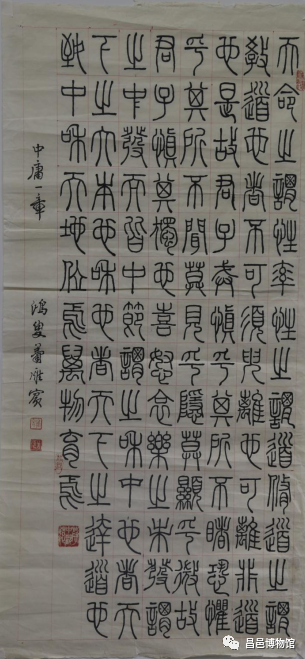 天命之謂性率性之謂道脩道之謂
教道也者不可須臾離也可離非道
也是故君子戒慎乎其所不睹恐懼
乎其所不聞莫見乎隱莫顯乎微故
君子慎其獨也喜怒哀樂之未發謂
之中發而皆中節謂之和中也者天
下之大本也和也者天下之達道也
致中和天地位焉萬物育焉
中庸一章 鴻叟蕭雁賓
昌邑博物馆